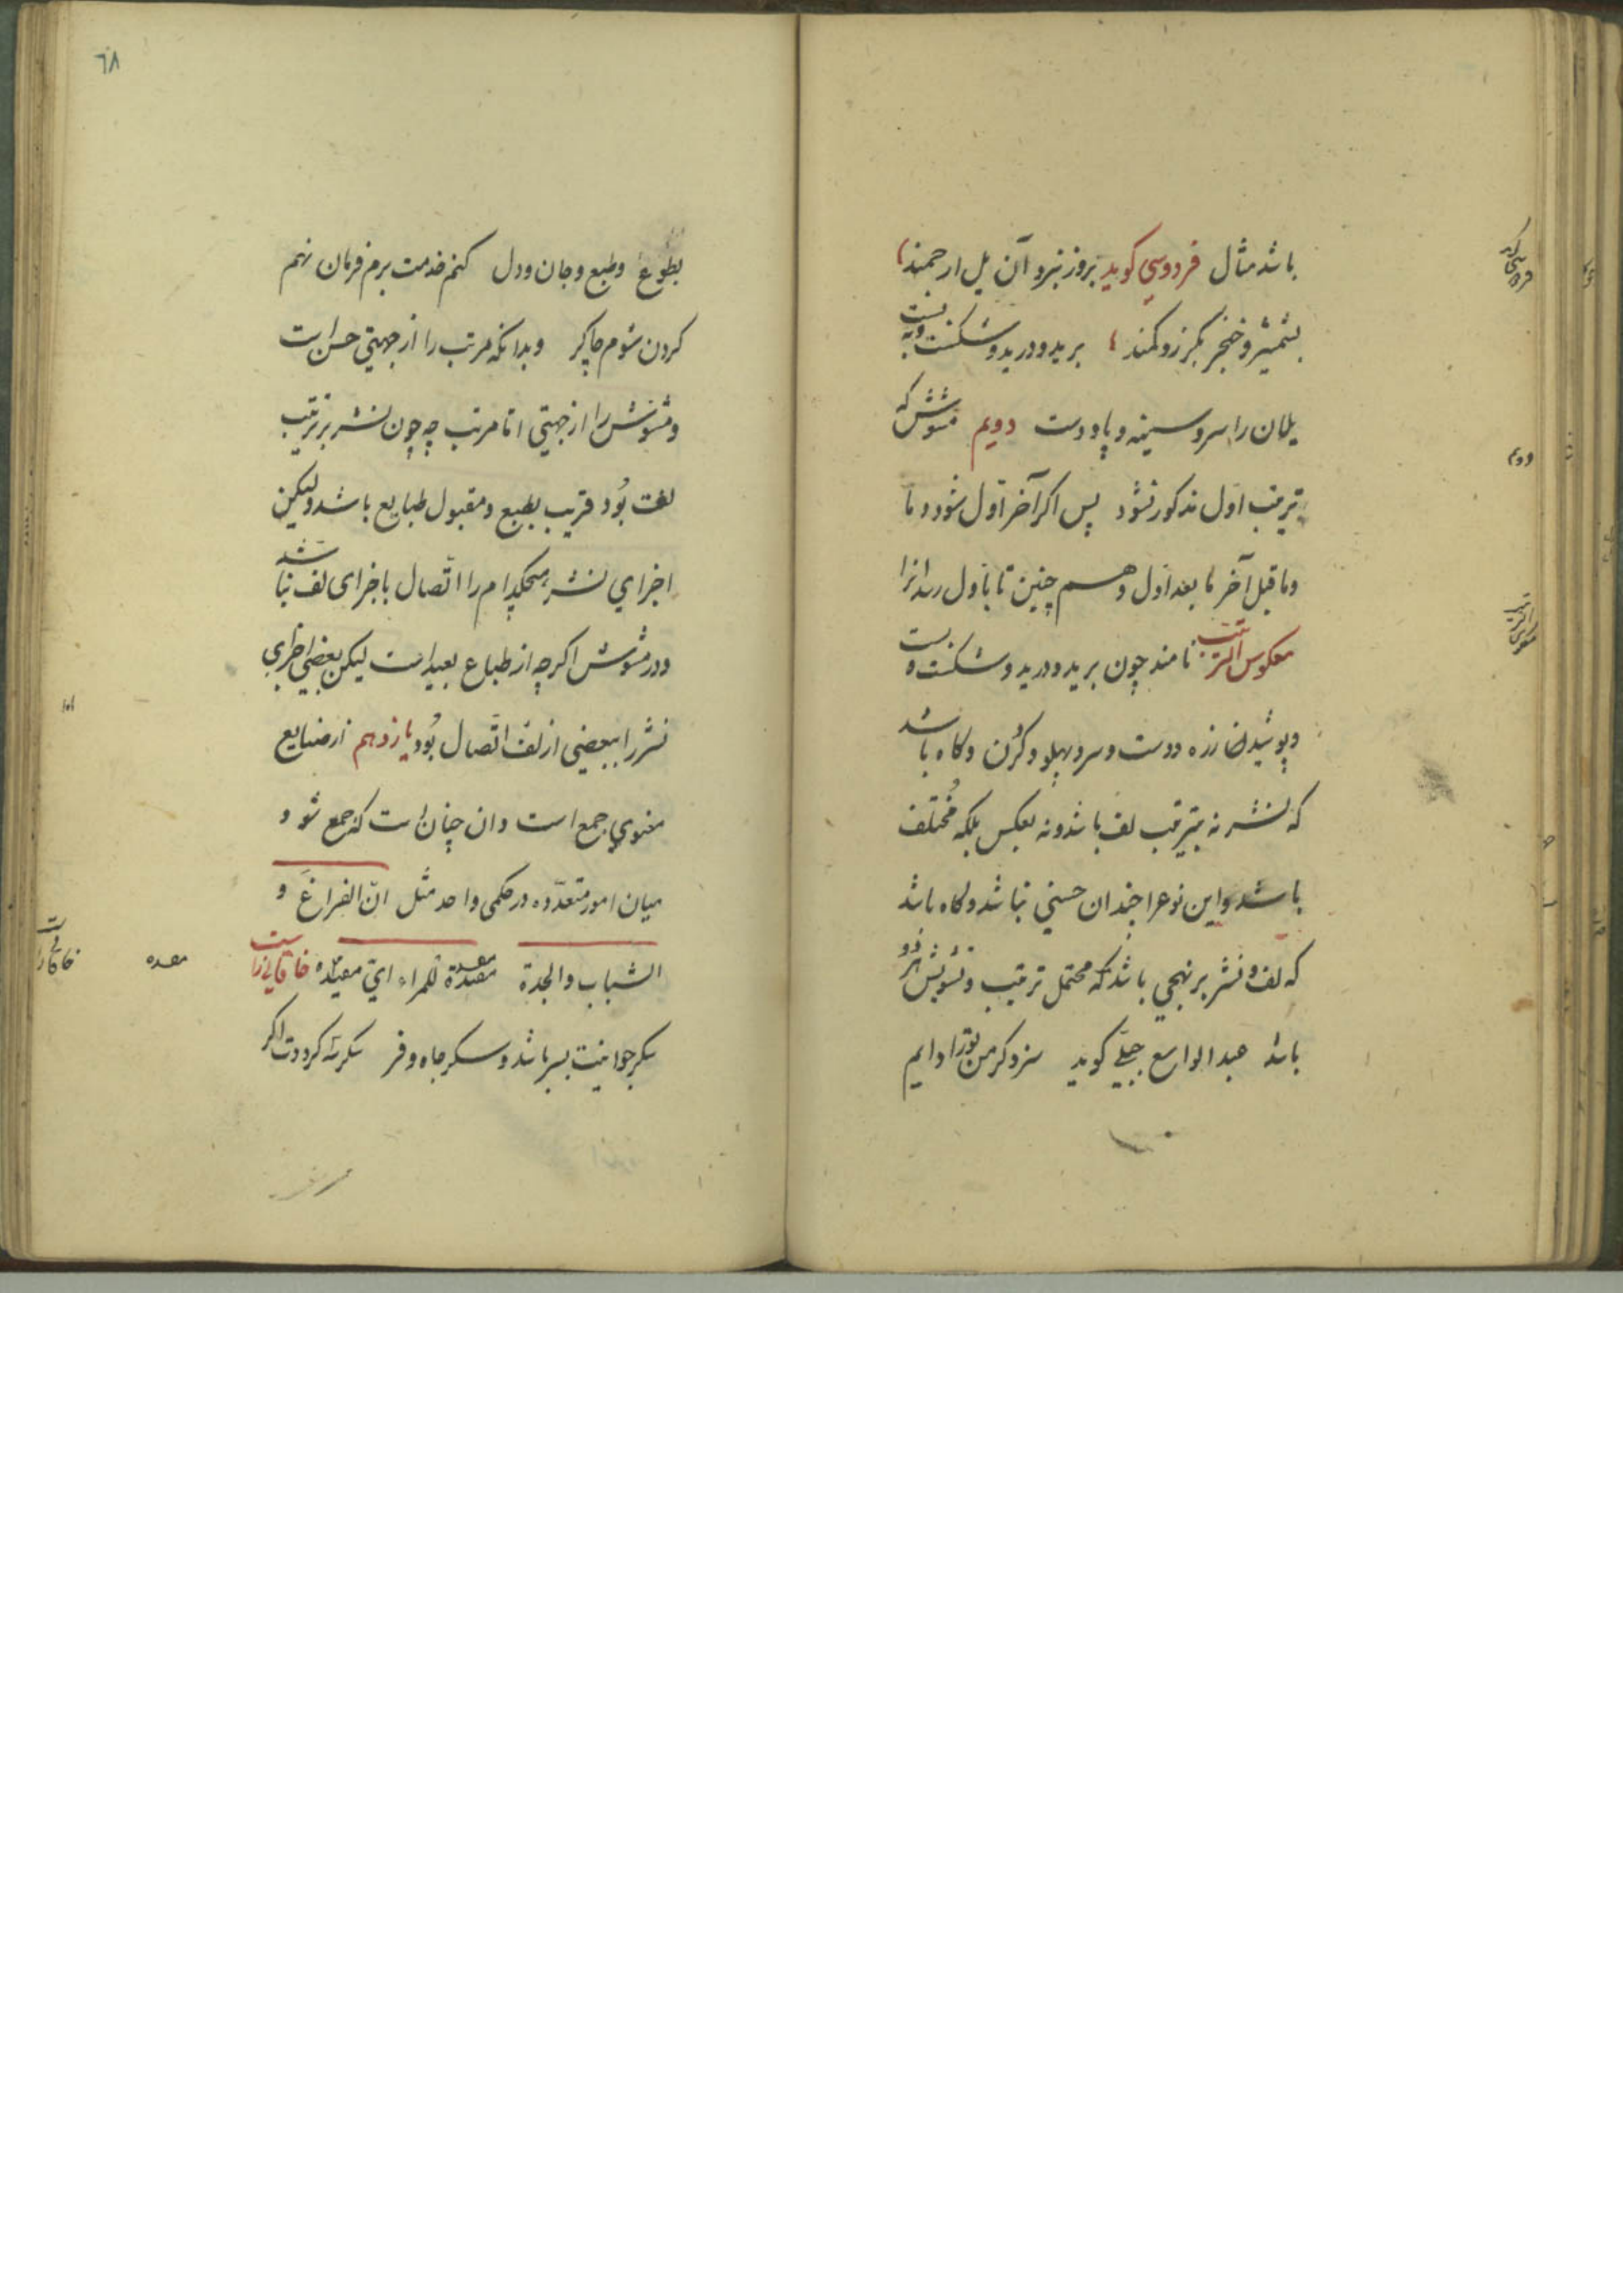 باشد مثال فردوسی کوید بروز نبرد آن یل ارجمند
بشمشیر و خنجر بکرز و کمند برید و درید و شکست و ببست
یلان را سر و سینه و پا و دست دویم مشوش که
بترتیب اول مذکور نشود پس اکر آخر اول شود و ما
و ما قبل آخر ما بعد اول و هم چنین تا باول رسد انرا
معکوس الترتیب نامند چون برید و درید و شکست و بست
و پوشید زره دست و سر و پهلو و کردن و کاه باشد
که نشر نه بترتیب لف باشد و نه بعکس بلکه مختلف
باشد و این نوع را چندان حسنی نباشد و کاه باشد
که لف و نشر بر نهجی باشد که محتمل ترتیب و تشویش هر دو
باشد عبد الواسع جبلی کوید سزد کر من تورا دایم
فردوسی کوید
دویم
معکوس الترتیب
٦٨
بطوع و طبع و جان و دل کنم خدمت برم فرمان نهم
کردن شوم چاکر و بدانکه مرتب را از جهتی حسن است
و مشوش را از جهتی اما مرتب چه چون نشر بر ترتیب
لف بُود قریب بطبع و مقبول طبایع باشد و لیکن
اجزای نشر هیچکدام را اتّصال باجزای لف نباشد
و در مشوش اکرچه از طباع بعید است لیکن بعضی اجزای
نشر را ببعضی از لف اتّصال بُود یازدهم از صنایع
معنوی جمع است و ان چنان است که جمع شود
میان امور متعدّده در حکمی واحد مثل انّ الفراغ و
الشباب و الجدة مفسدة للمراء ای مفسده خاقانی راست
سکر جوانیت بسر باشد و سکر جاه و فر سکر شه کردت اکر
مفسده
خاقانی راست